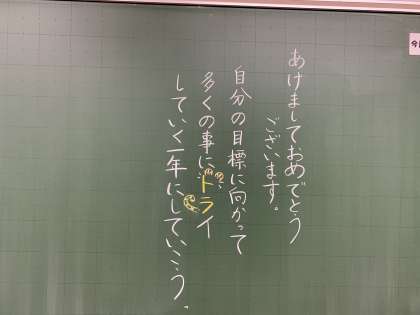 あけましておめでとう
ございます。
自分の目標に向かって
多くの事にトライ
していく一年にしていこう。